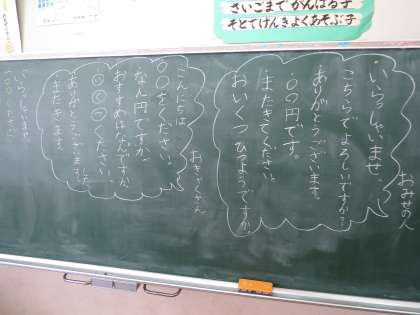 さいごまでがんばる子
そとでげんきよくあそぶ子
おみせの人
いらっしゃいませ。
こちらでよろしいですか?
ありがとうございます。
○○円です。
またきてください。
おいくつひつようですか。
おきゃくさん
こんにちは
○○をください。
なん円ですか。
おすすめはなんですか
◎◎ください。
ありがとうございました。
またきます。
いらっしゃいませ